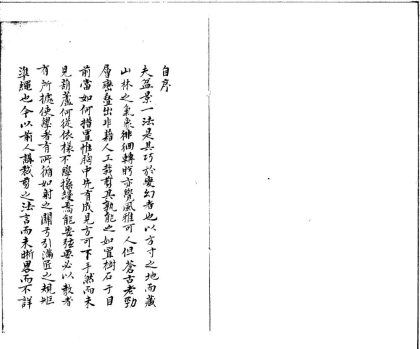 自序
夫盆景一法是具巧於變幻者也以方寸之地而藏
山林之氣象徘徊轉盻亦覺風雅可人但蒼古老勁
層巒疊出非藉人工裁剪其孰能之如置樹石于目
前當如何措置惟胸中先有成見方可下手然而未
見葫蘆何從依樣不學操縵焉能安弦要必以教者
有所據使學者有所循如射之關弓引滿匠之規矩
準繩也今以前人講裁剪之法言而未晰畧而不詳